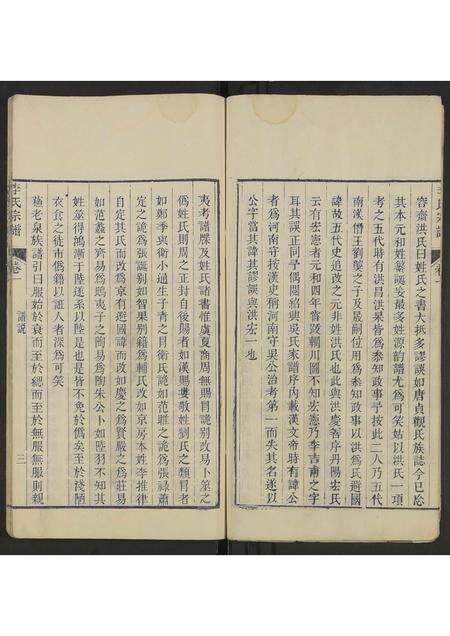 容齋洪氏曰姓氏之書大抵多謬誤如唐貞觀氏族誌今已忘
其本元和姓纂誕妄最多姓源韵譜尤為可笑姑以洪氏一項
考之五代時有洪昌洪杲皆為參知政事予按此二人乃五代
南漢僭王劉龑之子及晟嗣位用為參知政事以洪為氏避國
諱故五代史追改之元非姓洪氏也此與洪慶善序丹陽宏氏
云有宏憲者元和四年嘗跋輞川圖不知宏憲乃李吉甫之字
耳其誤正同予偶閱紹興吳氏家譜序內載漢文帝時有諱公
者為河南守按漢史稱河南守吳公治考第一而失其名遂以
公字當其諱謬誤與洪宏一也
夷考譜牒及姓氏諸書惟虞夏商周無賜目誂別改易卜筮之
僞姓氏則周之正封自後賜者如漢賜婁敬姓劉氏之類目者
如鄭季與衛小通生子青之目衛氏誂如范雎之誂為張祿蕭
定之誂為張誕別如智果別籍為輔氏改如京房本姓李推律
自定其氏而改為京有避國諱而改如慶之為賀嚴之為莊易
如范蠡之齊易為鴟夷子之陶易為陶朱公卜如陸羽不知其
姓筮得鴻漸于陸遂系以陸是也是皆不免於僞矣至於淺陋
衣食之徒市僞籍以誑人者深為可笑
蘓老泉族譜引曰服始於衰而至於緦而至於無服無服則親
李氏宗譜
卷一
譜說
三